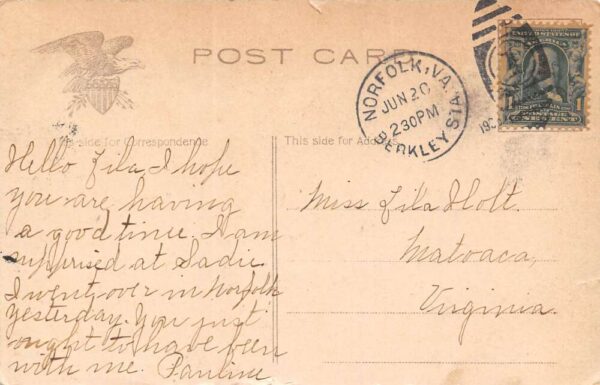 POST CARD
NORFOLK, VA.
BERKLEY STA.
JUN 20
2 30 PM
UNITED STATES OF
POSTAGE
1 ONE CENT 1
This side for Correspondence
This side for Address
Hello Lila I hope
you are having
a good time. I am
supprised at Sadie
I went over in Norfolk
yesterday. You just
ought to have been
with me. Pauline
Miss Lila Holt.
Matoaca,
Virginia.